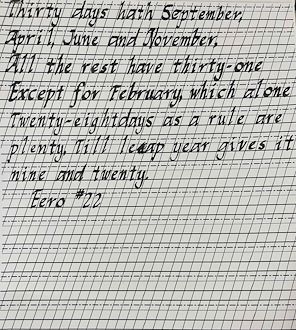 Thirty days hath September,
April, June and November,
All the rest have thirty-one
Except for February, which alone
Twenty-eightdays as a rule are
plenty, Till leap year gives it
nine and twenty.
Eero #22